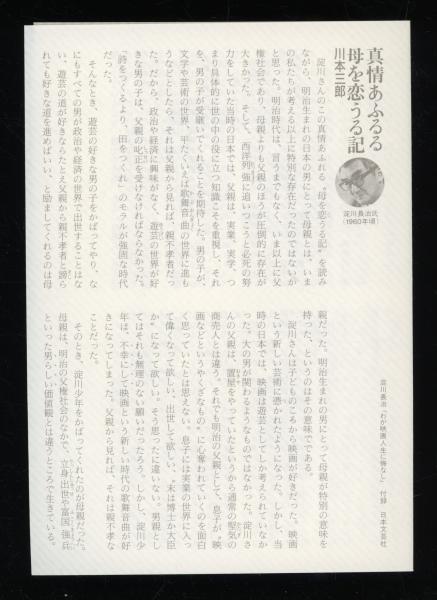 真情あふるる
母を恋うる記
川本三郎
淀川長治氏
(1960年頃)
淀川さんのこの真情あふれる〝母を恋うる記〟を読み
ながら、明治生まれの日本の男にとって母親とは、いま
の私たちが考える以上に特別な存在だったのではないが
と思った。明治時代は、言うまでもなく、いま以上に父
権社会であり、母親よりも父親のほうが圧倒的に存在が
大きかった。そして、西洋列強に追いつこうと必死の努
力をしていた当時の日本では、父親は、実業、実学、つ
まり具体的に世の中の役に立つ知識こそを重視し、それ
を、男の子が受継いでくれることを期待した。男の子が、
文学や芸術の世界、平たくいえば歌舞音曲の世界に進も
うなどとしたら、それは父親から見れば、親不孝者だっ
た。だから、政治や経済に興味がなく、遊芸の世界が好
きな男の子は、父親の叱正を受けなければならなかった。
「詩をつくるより、田をつくれ」のモラルが強固な時代
だった。
そんなとき、遊芸の好きな男の子をかばってやり、な
にもすべての男が政治や経済の世界で出世することはな
い、遊芸の道が好きならたとえ父親から親不孝者と謗ら
れても好きな道を進めばいい、と励ましてくれるのは母
親だった。明治生まれの男にとって母親が特別の意味を
持った、というのはその意味でである。
淀川さんは子どものころから映画が好きだった。映画
という新しい芸術に憑かれたようになった。しかし、当
時の日本では、映画は遊芸としてしか考えられていなか
った。大の男が関わるようなものではなかった。淀川さ
んの父親は、置屋をやっていたというから通常の堅気の
商売人とは違う。それでも明治の父親として、息子が〝映
画などというやくざなもの〟に心奪われていくのを面白
く思っていたとは思えない。息子には実業の世界に入っ
て偉くなって欲しい、出世して欲しい、〝末は博士か大臣
か〟になって欲しい。そう思ったに違いない。男親とし
てはそれも無理のない願いだったろう。しかし、淀川少
年は、不幸にして映画という新しい時代の歌舞音曲が好
きになってしまった。父親から見れば、それは親不孝な
ことだった。
そのとき、淀川少年をかばってくれたのが母親だった。
母親は、明治の父権社会のなかで、立身出世や富国強兵
といった男らしい価値観とは違うところで生きている。
淀川長治『わが映画人生に悔なし』 付録 日本文芸社